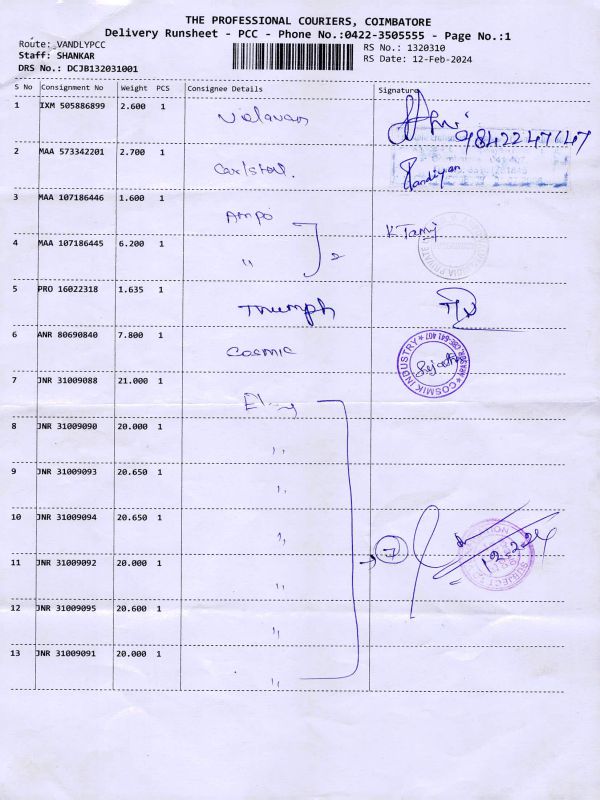 THE PROFESSIONAL COURIERS, COIMBATORE
Delivery Runsheet - PCC - Phone No.:0422-3505555 - Page No.:1
Route: VANDLYPCC
RS No.: 1320310
Staff: SHANKAR
RS Date: 12-Feb-2024
DRS No.: DCJB132031001
S No Consignment No Weight PCS Consignee Details Signature
1 IXM 505886899 2.600 1
9842247147
2 MAA 573342201 2.700 1 Pandiyan
3 MAA 107186446 1.600 1 Ampo
4 MAA 107186445 6.200 1 ,, 2
5 PRO 16022318 1.635 1 Triumph
6 ANR 80690840 7.800 1 Cosmic
COSMIK INDUSTRY
7 JNR 31009088 21.000 1
8 JNR 31009090 20.000 1 ,,
9 JNR 31009093 20.650 1 ,,
10 JNR 31009094 20.650 1 ,,
11 JNR 31009092 20.000 1 ,, 7 12-2-24
12 JNR 31009095 20.600 1 ,,
13 JNR 31009091 20.000 1 ,,